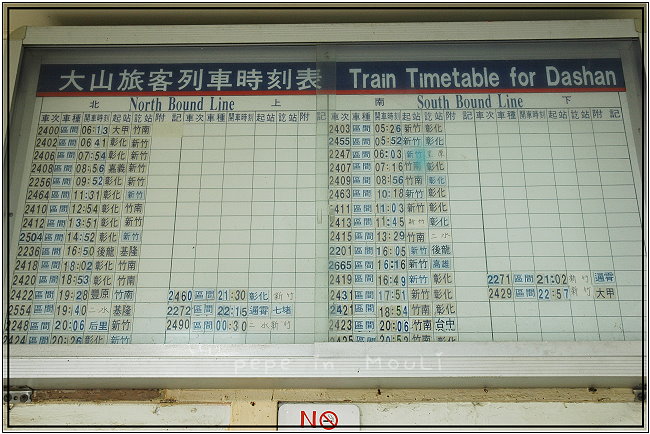 大山旅客列車時刻表 Train Timetable for Dashan
北 North Bound Line 上 南 South Bound Line 下
車次 車種 開車時刻 起站 訖站 附記 車次 車種 開車時刻 起站 訖站 附記 車次 車種 開車時刻 起站 訖站 附記 車次 車種 開車時刻 起站 訖站 附記
2400 區間 06:13 大甲 竹南 2403 區間 05:26 新竹 彰化
2402 區間 06:41 彰化 新竹 2455 區間 05:52 新竹 彰化
2406 區間 07:54 彰化 新竹 2247 區間 06:03 新竹
2408 區間 08:56 嘉義 新竹 2407 區間 07:16 竹南 彰化
2256 區間 09:52 彰化 新竹 2409 區間 08:56 竹南 彰化
2464 區間 11:31 彰化 新竹 2463 區間 10:18 新竹 彰化
2410 區間 12:54 彰化 竹南 2411 區間 11:03 新竹 彰化
2412 區間 13:51 彰化 新竹 2413 區間 11:45 新竹 彰化
2504 區間 14:52 彰化 新竹 2415 區間 13:29 竹南 二水
2236 區間 16:50 後龍 基隆 2201 區間 16:05 新竹 後龍
2418 區間 18:02 彰化 竹南 2665 區間 16:16 新竹 高雄
2420 區間 18:53 彰化 竹南 2419 區間 16:49 新竹 彰化 2271 區間 21:02 新竹 通霄
2422 區間 19:28 豐原 竹南 2460 區間 21:30 彰化 新竹 2431 區間 17:51 新竹 彰化 2429 區間 22:57 新竹 大甲
2554 區間 19:40 二水 基隆 2272 區間 22:15 通霄 七堵 2421 區間 18:54 竹南 彰化
2248 區間 20:06 后里 新竹 2490 區間 00:30 二水 新竹 2423 區間 20:06 竹南 台中
2424 區間 20:26 彰化 新竹 2425 區間 20:52 新竹 彰化
pepe MOULI
NO